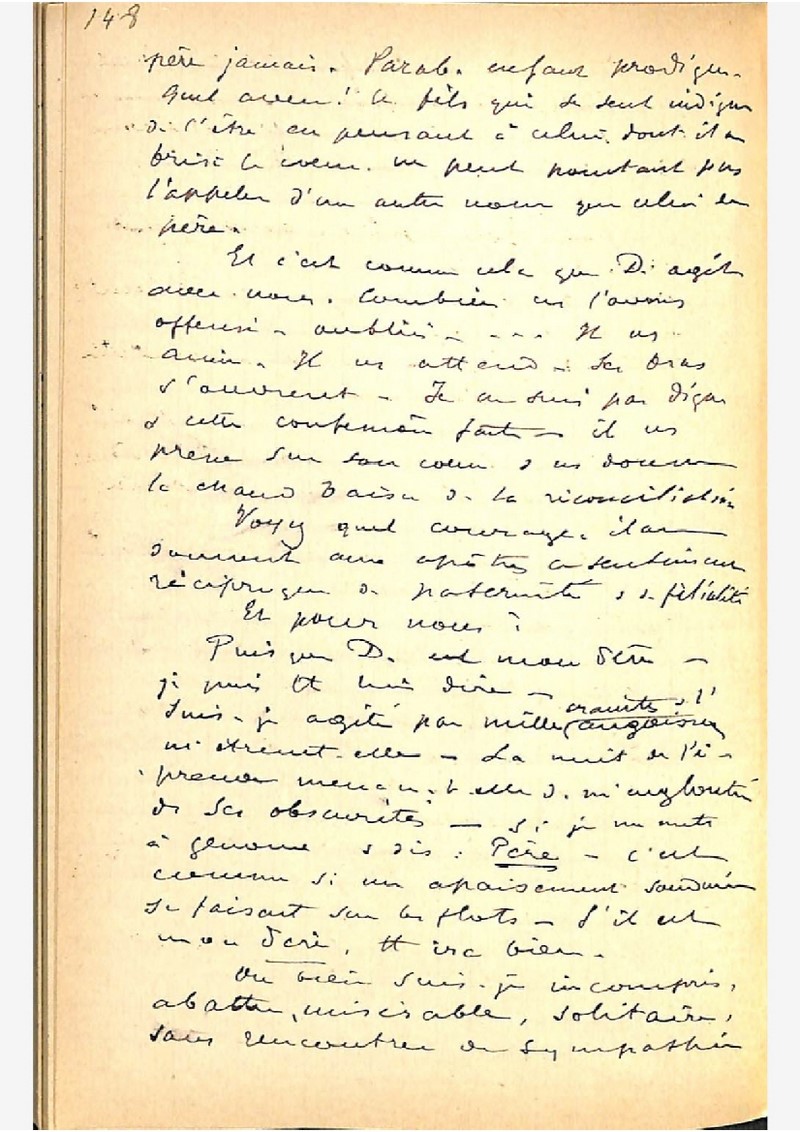 148
père jamais. Parab. enfant prodigue.
Quel aveu! Ce fils qui se sent indigne
de l'être en pensant à celui dont il a
brisé le coeur. ne peut pourtant pas
l'appeler d'un autre nom que celui de
père.
Et c'est comme cela que D. agit
avec nous. Combien ns l'avons
offensé - oublié - - - - Il ns
aime. Il ns attend - Ses bras
s'ouvrent - Je ne suis pas digne
& cette confession faite - il ns
presse sur son coeur & ns donne
le chaud baiser de la réconciliation
Voyez quel courage.
donnent aux apôtres ce sentiment
réciproque de paternité & de filialité
Et pour nous?
Puis que D. est mon Père -
je puis tt lui dire -
craintes & l'
Suis-je agité par mille angoisses
m'étreint-elle - La nuit de l'é-
preuve menace-t-elle de m'engloutir
de ses obscurités - Si je me mets
à genoux & dis: Père - c'est
comme si un apaisement soudain
se faisait sur les flots - S'il est
mon Père, tt ira bien.
Ou bien suis-je incompris,
abattu, misérable, solitaire,
sans rencontrer de sympathie